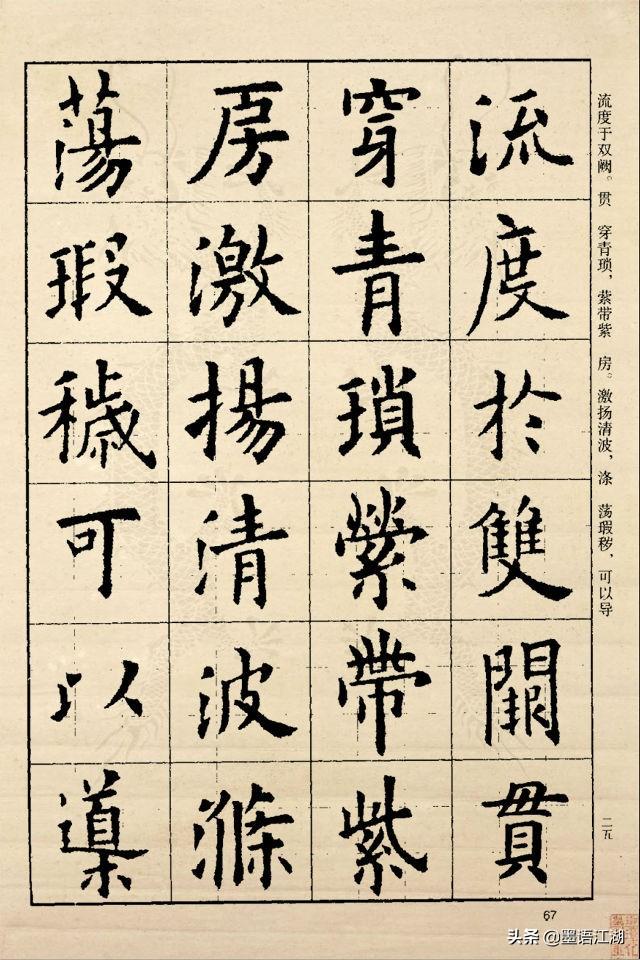 流度于双阙。贯 穿青琐，萦带紫 房。激扬清波，涤 荡瑕秽，可以导
流度於雙闕貫
穿青瑣縈帶紫
房激揚清波滌
蕩瑕穢可以導
二五
67
头条 @墨语江湖